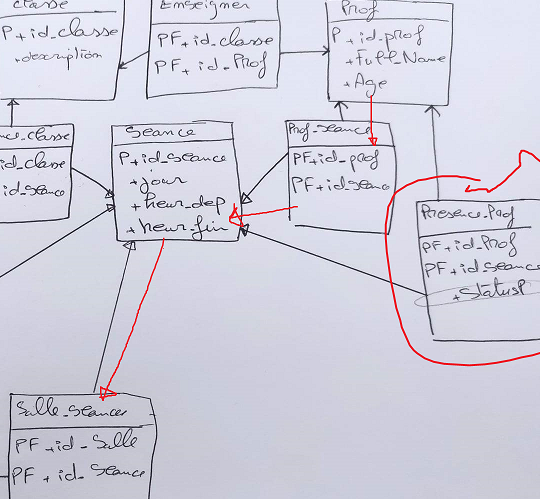 classe
P + id_classe
+ description
Enseigner
PF + id_classe
PF + id_Prof
Prof
P + id_prof
+ Full_Name
+ Age
nce_classe
id_classe
id_seance
Seance
P + id_seance
+ jour
+ heur_dep
+ heur_fin
Prof_seance
PF + id_prof
PF + id_seance
Presence_Prof
PF + id_Prof
PF + id_seance
+ StatusP
Salle_seances
PF + id_Salle
PF + id_Seance